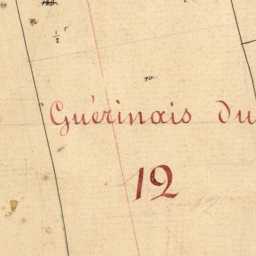 Guérinais du
12